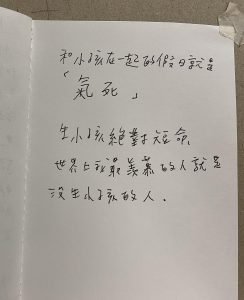 和小孩在一起的假日就是
「氣死」
生小孩絕對短命,
世界上我最羨慕的人就是
沒生小孩的人.